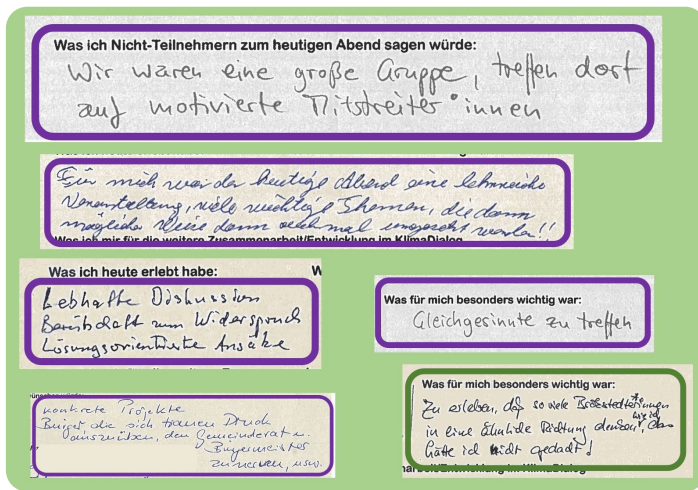 Was ich Nicht-Teilnehmern zum heutigen Abend sagen würde:
Wir waren eine große Gruppe, treffen dort
auf motivierte Mitstreiter*innen
Für mich war der heutige Abend eine lehrreiche
Veranstaltung, viele wichtige Themen, die dann
möglicher Weise dann auch mal umgesetzt werden!!
Was ich mir für die weitere Zusammenarbeit/Entwicklung im KlimaDialog
Was ich heute erlebt habe:
Lebhafte Diskussion
Bereitschaft zum Widerspruch
Lösungsorientierte Ansätze
Was für mich besonders wichtig war:
Gleichgesinnte zu treffen
konkrete Projekte
Bürger die sich trauen Druck
auszuüben, den Gemeinderat u.
Bürgermeister
zu nerven, usw.
Was für mich besonders wichtig war:
Zu erleben, daß so viele
in eine ähnliche Richtung denken, das
hätte ich nicht gedacht!
arbeit/Entwicklung im KlimaDialog